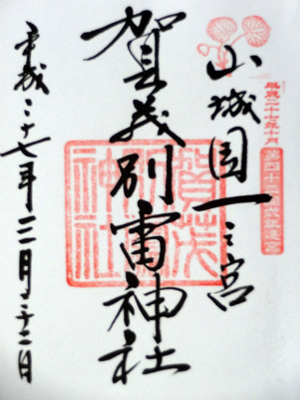 平成二十七年十月
第四十二回式年遷宮
山城国一之宮
賀茂別雷神社
賀茂
別雷
神社
平成二十七年三月二十二日